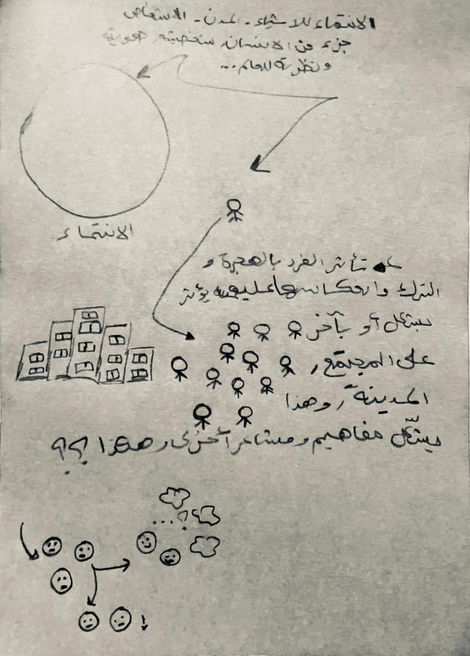 الانتماء للاشياء - المدن - الاشخاص
جزء من الانسان شخصيته هويته
ونظرته للعالم...
الانتماء
تأثر الفرد بالهجرة و
الترك وانعكاسها عليه يؤثر
بشكل أو بآخر
على المجتمع,
المدينة, وهذا
يشكّل مفاهيم ومشاعر أخرى وهكذا ؟؟
...؟
!